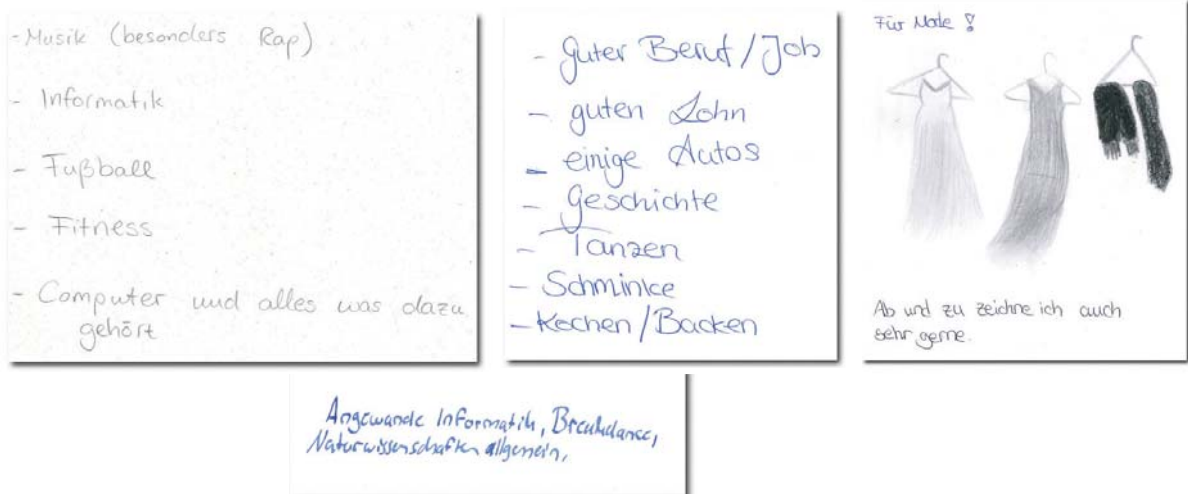 - Musik (besonders Rap)
- Informatik
- Fußball
- Fitness
- Computer und alles was dazu
gehört
- guter Beruf/Job
- guten Lohn
- einige Autos
- Geschichte
- Tanzen
- Schminke
- Kochen/Backen
Für Mode!
Ab und zu zeichne ich auch
sehr gerne.
Angewande Informatik, Breakdance,
Naturwissenschaften allgemein,